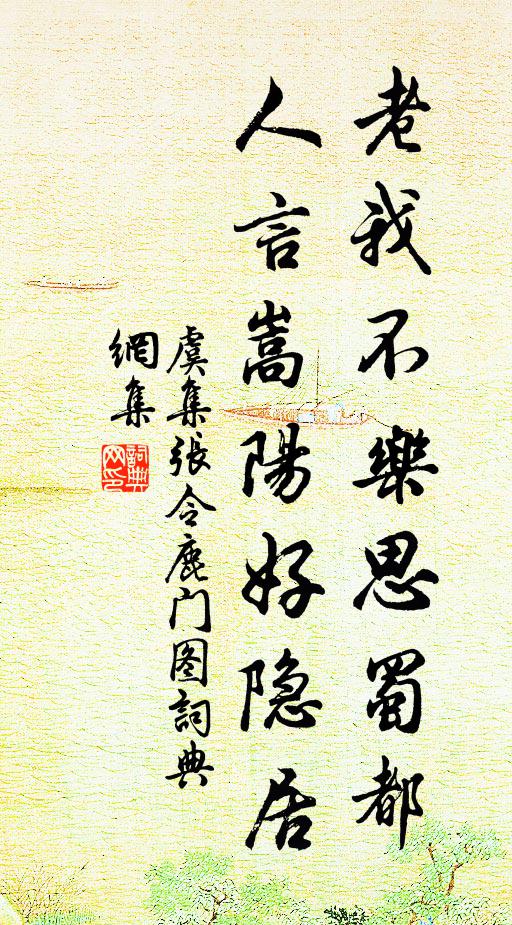 老我不樂思蜀都
人言嵩陽好隐居
虞集張令鹿门图詞典
網集
詞典
网印